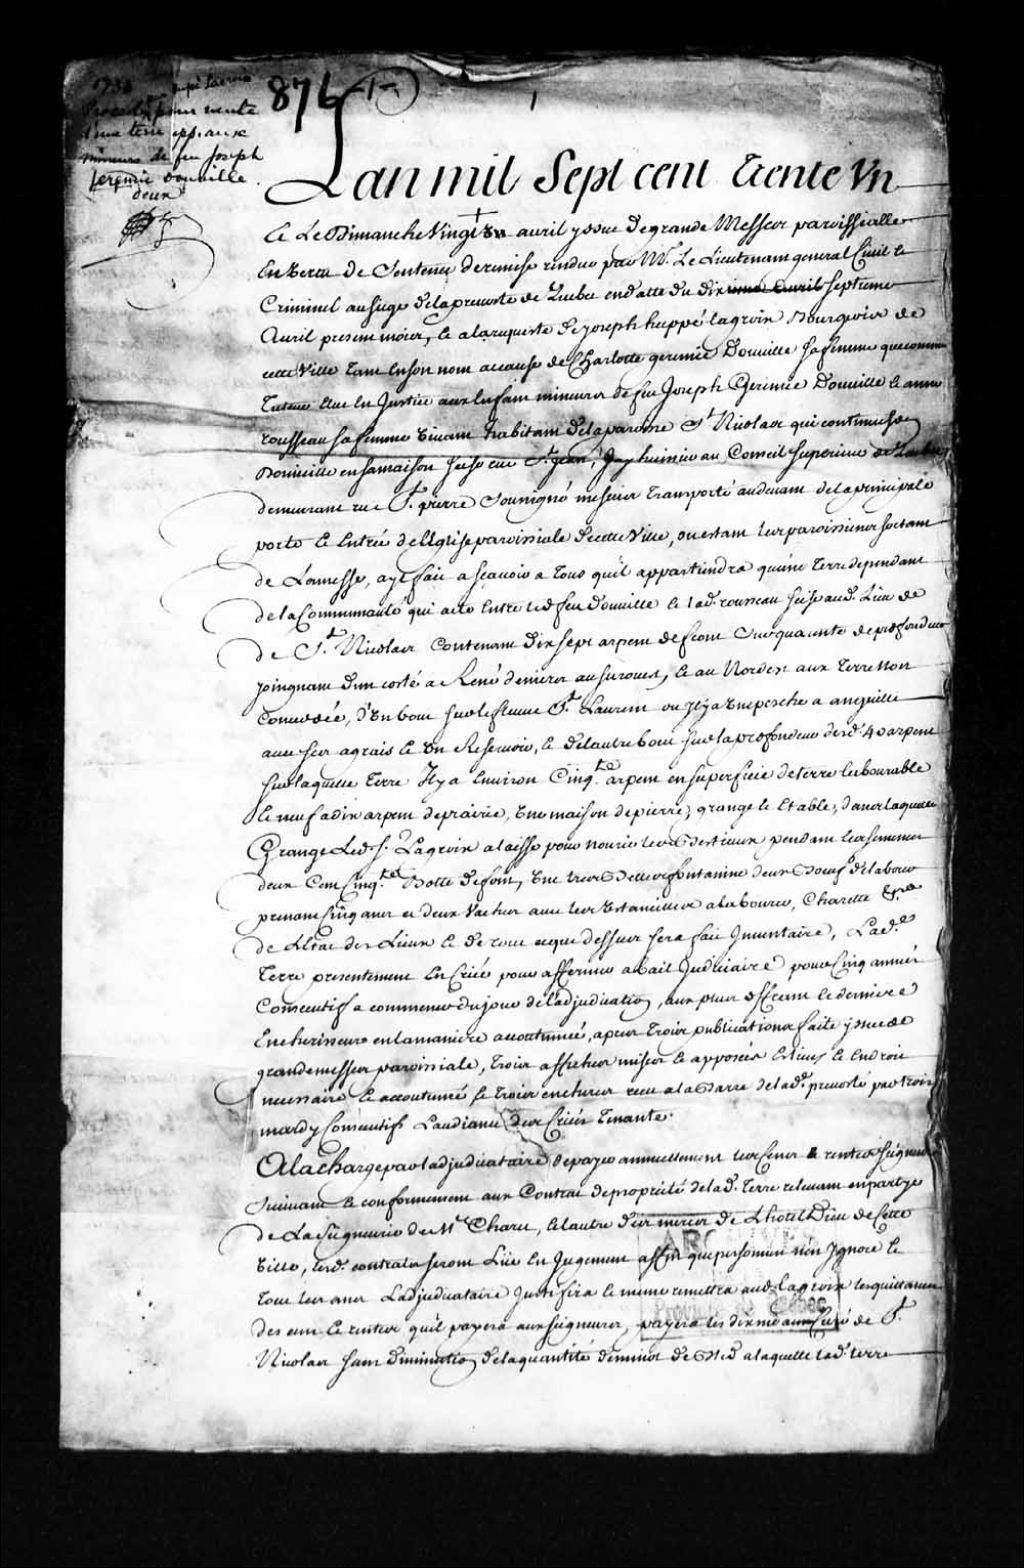 1731
876 1
hupé Lacroix
pour vente
d'une terre app. aux
mineurs de feu Joseph
Jeremie Douville
deux
Lan mil Sept cent Trente Un
Ce Le Dimanche Vingt Un avril yssue de grande Messes paroissialle
En Vertu de Sentence de remise rendue par Mr. Le Lieutenant general Civil &
Criminel au siege de la prevosté de Quebec en datte du dix septieme
Avril present mois, Et a la requeste de joseph huppé lagroix Bourgeois de
cette Ville tant En son nom a cause de Charlotte gerimie Douville sa femme que comme
Tuteur Elue En Justice aux Enfans mineurs de feu Joseph Gerimie Douville et anne
rousseau sa femme vivans habitans de la paroisse St Nicolas qui continue son
Domicille en sa maison seise rue St. jean, huissier au Conseil Superieur de Quebec
demeurant rue St. pierre Soussigné me suis Transporté au devant de la principale
porte et Entrée de l'Eglise paroissiale de cette Ville, ou estant les paroissiens sortant
de La messe, ayt fait a scavoir a Tous qu'il appartiendra qu'une Terre dependant
de la Communauté qui a eté Entre led. feu Douville et lad. rousseau seise aud. Lieu de
de St. Nicolas Contenant Dix sept arpens de front Sur quarante de profondeur
joingnant d'un costé a René au surouest, Et au Nordest aux Terre Non
Concedée, d'Un bout sur le fleuve St. Laurent ou jl y a Une pesche a anguille
avec ses agrais et Un Reservoir, Et de l'autre bout sur la profondeur desd. 40 arpens
sur laquelle Terre Il y a Environ Cinqte. arpens en superficie de terre labourable
Et neuf a dix arpens de prairie, Une maison de pierre, grange et Etable, dans laquelle
Grange Led. S. Lagroix a laissé pour nourir les Bestiaux pendant les semences
deux Cent Cinqte. Botte de foin, deux Boeuf de labour
prenant cinq ans et deux Vaches avec les Ustancilles a labourer, Charette &ca
de L'Etat des Lieux Et de tout ce que dessus sera fait Inventaire, Lad.
Terre presentement En Criée pour affermer a bail Judiciaire pour Cinq année
Consecutif a commencer du jour de l'adjudication, aux plus offrant et dernier
Encherisseur en la maniere accoutumée, apres Trois publications faite yssue de
grande messes paroissiale, Trois affiches mises et apposées Es lieux et Endroit
necessaire et accoutumé Et Trois encheres receu a la Barre de lad. prevosté par trois
mardy Consecutifs L'audiance des Criées Tenante.
A la charge par l'adjudicataire de payer annuellement les Cens & rentes seigneu
Suivant et conformement aux Contrat de propriété de lad. Terre relevant en partye
de La Seigneurie de Mr. Charu, Et l'autre de L'hotel Dieu de Cette
Ville, lesd. contrats seront Lüe En Jugement affin que personne n'en Jgnore Et
tous les ans L'adjudicataire Justifira Et meme remettra aud. lagroix les quittances
des cens et rentes qu'il payera aux seigneurs, payera les dixme au Curé de St
Nicolas sans Diminution de la quantité de minots de Bled a laquelle lad. terre
ARCHIVES
Province de Québec